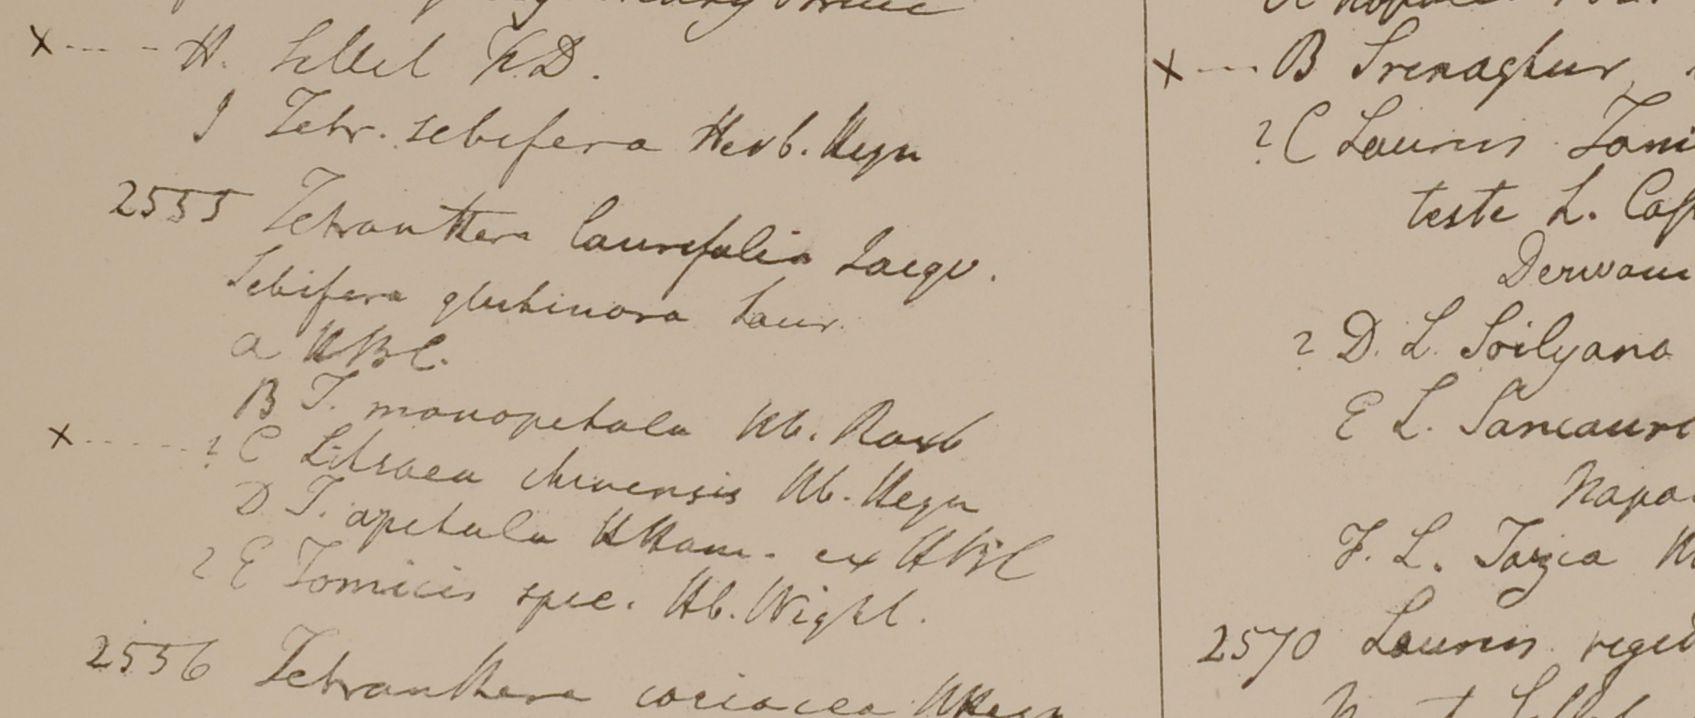 H. Sillet F.D.
I Tetr. sebifera Herb. Heyn
2555 Tetranthera laurifolia Jacqu.
Sebifera glutinosa Lour.
a HBC.
B T. monopetala Hb. Roxb
? C Litsaea chinensis Hb. Heyn
D T. apetala HHam. ex HBC
? E Tomicis spec. Hb. Wight.
2556 Tetranthera coriacea HHeyn
B Srenaghur
? C Laurus
teste L.
? D. L. Soilyana
E L.
F. L.
2570 Laurus